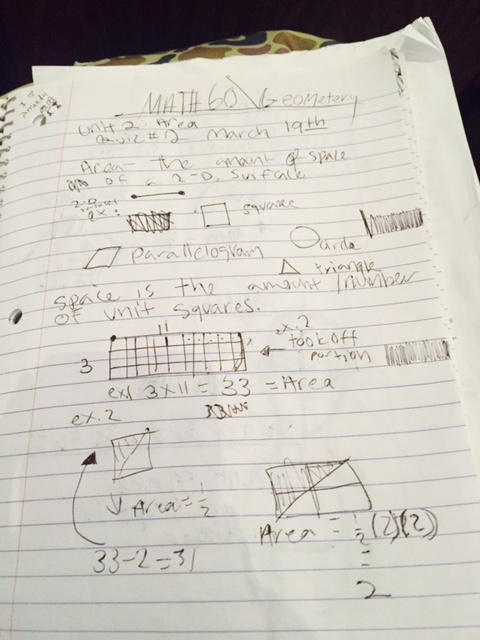 MATH 60 \ Geometery
Unit 2: Area
Quiz # 2 March 19th
Area - the amount of space
of a 2-D surface
2-D
ex:
square
parallelogram
circle
triangle
space is the amount/number
of unit squares.
11
3
ex. 2
took off
portion
ex1 3x11 = 33 = Area
ex. 2
Area = 1/2
33-2=31
Area = 1/2 (2)(2)
=
2